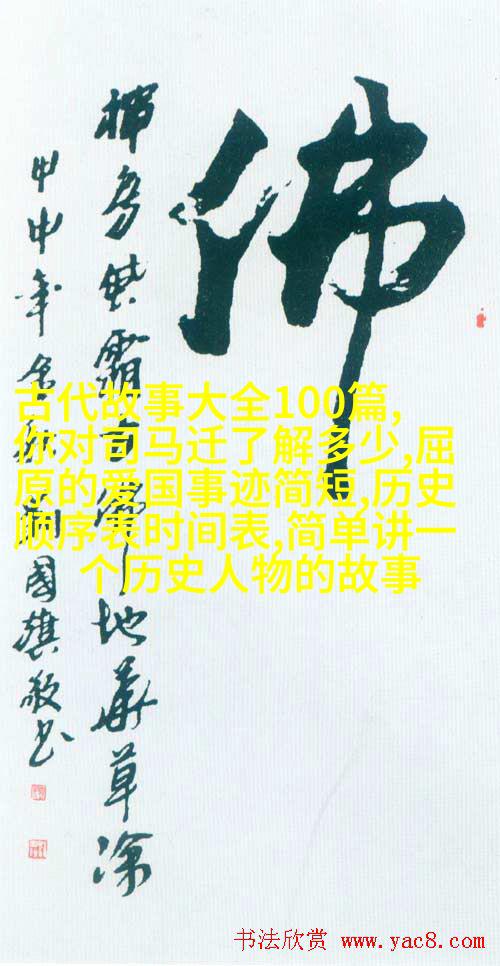 佛
霜 地 草
甲申年 国旗敬书
古代故事大全100篇,
你对司马迁了解多少,屈
原的爱国事迹简短,历史
顺序表时间表,简单讲一
个历史人物的故事
书法欣赏 www.yac8.com